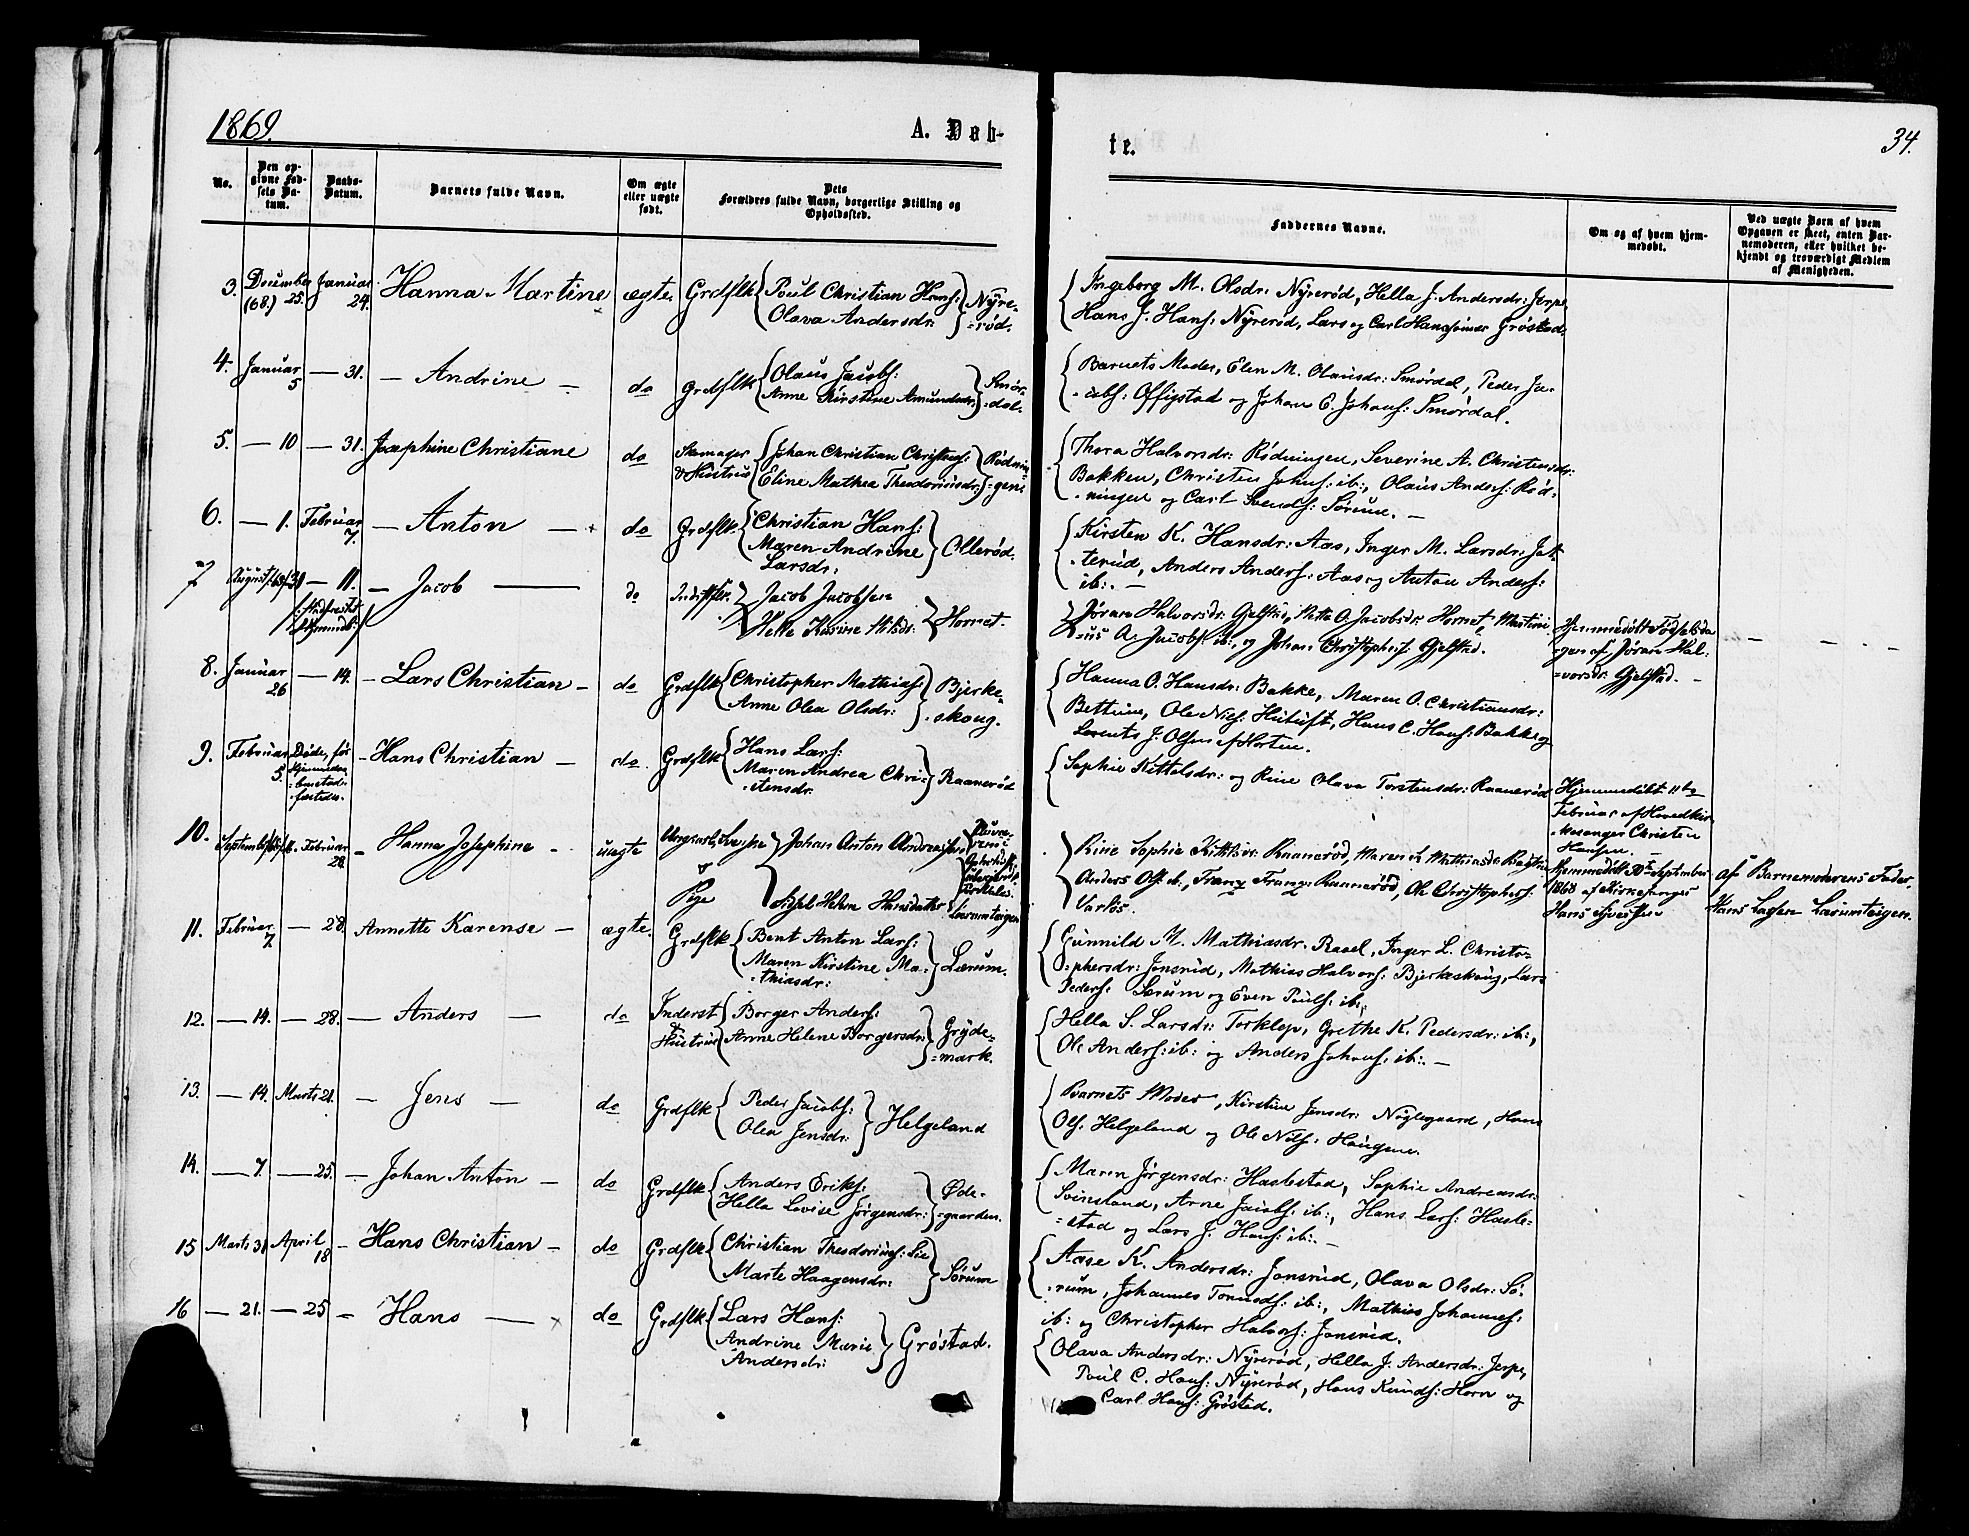 1869.
A. Døb-
te.
34.
No.
Den op-
givne Fød-
sels Da-
tum.
Daabs-
Datum.
Barnets fulde Navn.
Om ægte
eller uægte
født.
Dets
Forældres fulde Navn, borgerlige Stilling og
Opholdssted.
Faddernes Navne.
Om og af hvem hjem-
medøbt.
Ved uægte Børn af hvem
Opgaven er skeet, enten Bar-
nemoderen, eller hvilket be-
kjendt og troværdigt Medlem
af Menigheden.
3. December (68.) 25. Januar 24. Hanna Martine ægte Grdflk
Poul Christian Hans:
Olava Andersdr:
Nyre-
=rød.
Ingeborg M. Olsdr: Nyrerød, Hella J. Andersdr: Jerpe,
Hans J. Hans: Nyrerød, Lars og Carl Hanssønner Grøstad.
4. Januar 5 — 31. — Andrine — do Grdflk
Olaus Jacobs:
Anne Kirstine Amundsdr:
Smør-
=dal.
Barnets Moder, Elen M. Olausdr: Smørdal, Peder Ja-
=cobs: Offigstad og Johan E. Johans: Smørdal.
5. — 10 — 31. Josephine Christiane do Skomager
& Hustru
Johan Christian Christens:
Eline Mathea Theodoriusdr:
Rødnin-
=gen
Thora Halvorsdr: Rødningen, Severine A. Christensdr:
Bakken, Christen Johns: ib:, Olaus Anders: Rød-
=ningen og Carl Svends: Sørum. —
6. — 1. Februar 7. — Anton — do Grdflk
Christian Hans:
Maren Andrine
Larsdr:
Ollerød.
Kirsten K. Hansdr: Aas, Inger M. Larsdr:
terud, Anders Anders: Aas og Anton Anders:
ib: —
7 August — 11. — Jacob — do
Jacob Jacobsen
Helle Karine Nilsdr:
Hornet.
Jøran Halvorsdr: Gjelstad, Mette O. Jacobsdr: Hornet, Martini-
=us A. Jacobs: ib:, og Johan Christophers: Gjelstad.
Hjemmedøbt Fødselsda-
=gen af Jøran Hal-
=vorsdr: Gjelstad. —
8. Januar 26 — 14. — Lars Christian — do Grdflk
Christopher Mathias:
Anne Olea Olsdr:
Bjerke-
=skoug.
Hanna O. Hansdr: Bakke, Maren O. Christiansdr:
Bettum, Ole Niels: Hutuft, Hans C. Hans: Bakke og
Lorents J. Olsen af Horten.
9. Februar 5. Døde, før
Hjemmedaa-
=ben stad-
=fæstedes.
— Hans Christian — do. Grdflk
Hans Lars:
Maren Andrea Chri-
=stensdr:
Raanerød
Sophie Kittelsdr: og Rine Olava Torstensdr: Raanerød
Hjemmedøbt 11te
Februar af Hovedkir-
=kesanger Christen
Hansen. —
10. September Februar 28. — Hanna Josephine — uægte Ungkarl
&
Pige
Johan Anton Andreassen
Sissel Helene Hansdatter
Lærumteigen
Rine Sophie Kittelsdr: Raanerød, Maren L. Mathiasdr:
Anders Ols: ib:, Franz Franz: Raanerød, Ole Christophers:
Varløs.
Hjemmedøbt 30te September
1868 af Kirkesanger
Hans
af Barnemoderens Fader,
Hans Larsen Lærumteigen.
11. Februar 7. — 28. Annette Karense — ægte. Grdflk
Bent Anton Lars:
Maren Kirstine Ma-
=thiasdr:
Lærum.
Gunnild M. Mathiasdr: Raael, Inger L. Christo-
=phersdr: Jonsrud, Mathias Halvors: Bjerkeskoug, Lars
Peders: Sørum og Even Pouls: ib:,
12. — 14. — 28. — Anders — do Inderst
&
Hustru
Borger Anders:
Anne Helene Borgersdr:
Gryde-
=mark.
Hella S. Larsdr: Torklep, Grethe K. Pedersdr: ib:,
Ole Anders: ib: og Anders Johans: ib:. —
13. — 14. Marts 21. — Jens — do Grdflk
Peder Jacobs:
Olea Jensdr:
Helgeland
Barnets Moder, Kirstine Jensdr: Nøglegaard, Hans
Ols: Helgeland og Ole Nils: Haugene.
14. — 7. — 25. — Johan Anton — do Grdflk
Anders Eriks:
Hella Lovise Jørgensdr:
Øde-
=gaarden.
Maren Jørgensdr: Haslestad, Sophie Andreasdr:
Svinsland, Arne Jacobs: ib:, Hans Lars: Hasle-
=stad og Lars J. Hans: ib:. —
15 Marts 31 April 18 — Hans Christian — do Grdflk
Christian Theodorius: Lie
Marte Haagensdr:
Sørum
Aase K. Andersdr: Jonsrud, Olava Olsdr: Sø-
=rum, Johannes Tormods: ib:, Mathias Johannes:
ib: og Christopher Halvors: Jonsrud.
16 — 21. — 25 — Hans — do Grdflk
Lars Hans:
Andrine Marie
Andersdr:
Grøstad.
Olava Andersdr: Nyrerød, Hella J. Andersdr: Jerpe,
Poul C. Hans: Nyrerød, Hans Knuds: Horn og
Carl Hans: Grøstad.